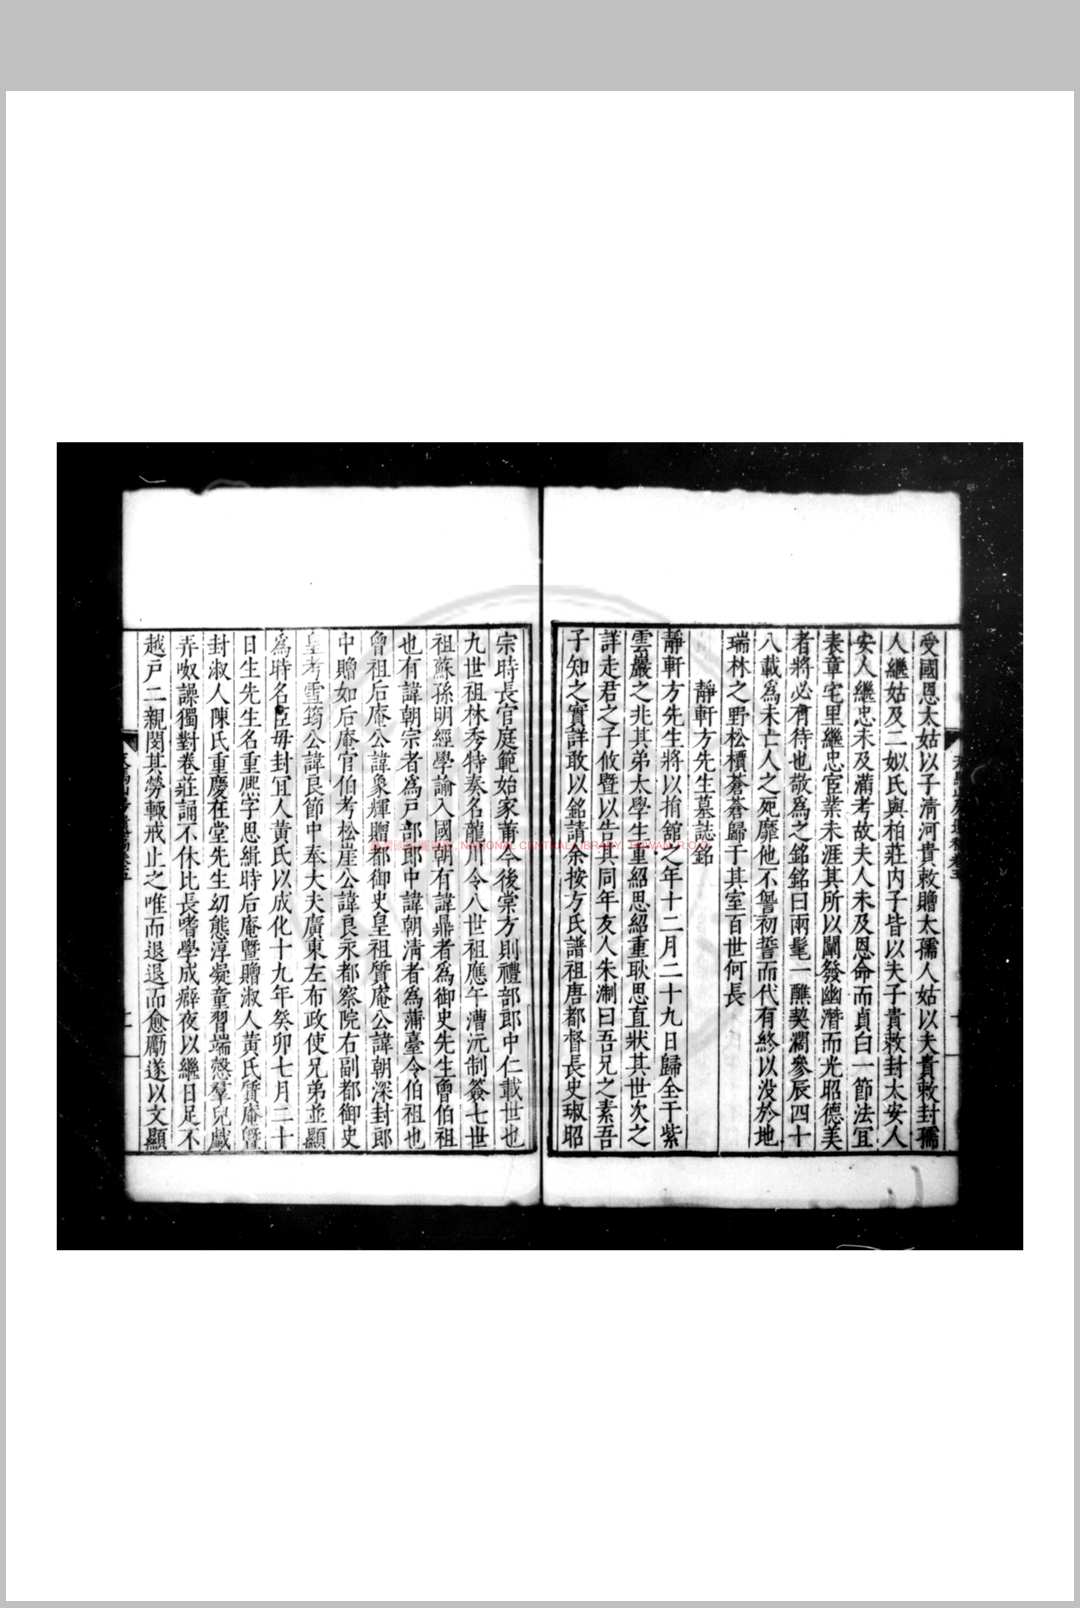 受國恩太姑以子清河貴敕贈太孺人姑以夫貴敕封孺
人繼姑及二姒氏與柏莊内子皆以夫子貴敕封太安人
安人繼忠未及滿考故夫人未及恩命而貞白一節法宜
表章宅里繼忠宦業未涯其所以闡發幽潛而光昭德美
者將必有待也敬為之銘銘曰兩髦一醮契濶參辰四十
八載為未亡人之死靡他不諐初誓而代有終以没於地
瑞林之野松檟蒼蒼歸于其室百世何長
靜軒方先生墓誌銘
靜軒方先生將以捐舘之年十二月二十九日歸全于紫
雲巖之兆其弟太學生重紹思紹重耿思直狀其世次之
詳走君之子攸暨以告其同年友人朱淛曰吾兄之素吾
子知之實詳敢以銘請余按方氏譜祖唐都督長史琡昭
宗時長官庭範始家莆今後棠方則禮部郎中仁載世也
九世祖林秀特奏名龍川令八世祖應午漕沅制簽七世
祖蘇孫明經學諭入國朝有諱鼎者為御史先生曾伯祖
也有諱朝宗者為戸部郎中諱朝清者為蒲臺令伯祖也
曾祖后庵公諱象輝贈都御史皇祖質庵公諱朝深封郎
中贈如后庵官伯考松崖公諱良永都察院右副都御史
皇考雪筠公諱良節中奉大夫廣東左布政使兄弟並顯
為時名臣毋封宜人黃氏以成化十九年癸卯七月二十
日生先生名重熈字思緝時后庵曁贈淑人黃氏質庵曁
封淑人陳氏重慶在堂先生幼態淳凝童習端慤羣兒戲
弄呶譟獨對卷莊誦不休比長嗜學成癖夜以繼日足不
越戸二親閔其勞輙戒止之唯而退退而愈勵遂以文顯
NATIONAL CENTRAL LIBRARY, TAIWAN, R.O.C.